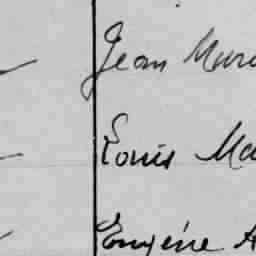 Jean Mar
Louis Ma
Eugène A